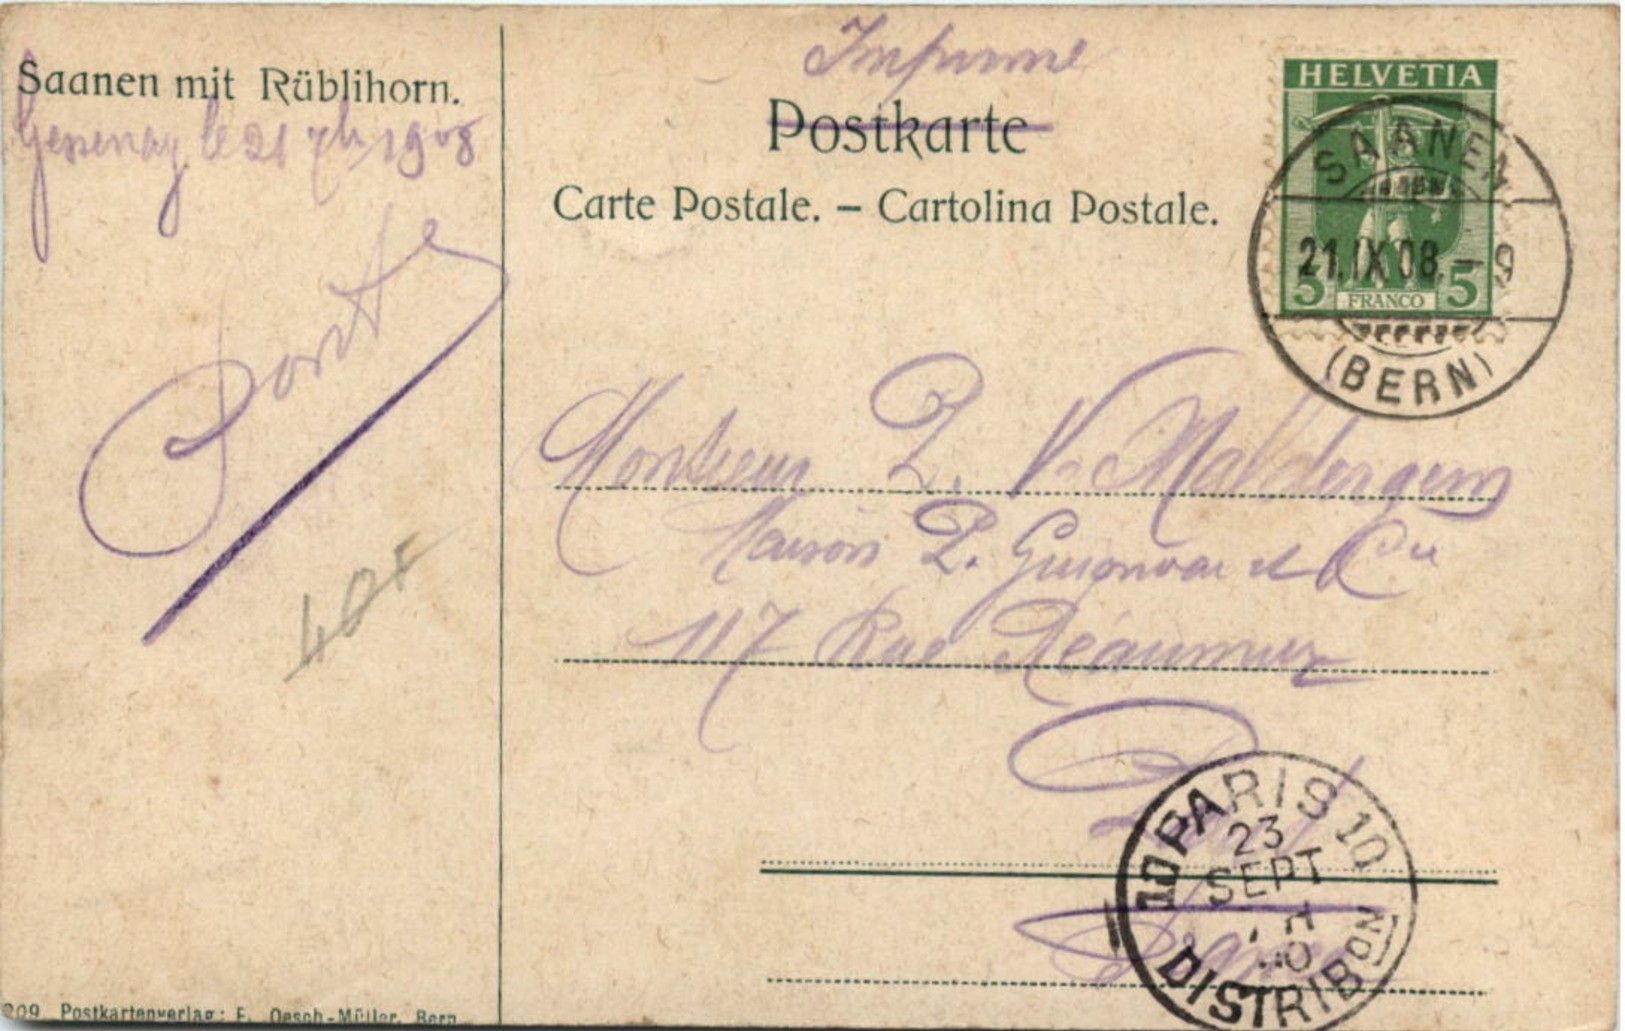 Saanen mit Rüblihorn.
Gessenay le 21 7b 1908
Imprimé
Postkarte
Carte Postale. – Cartolina Postale.
HELVETIA
5 FRANCO 5
SAANEN
21.IX.08.–9
(BERN)
Monsieur V. Maldergem
Maison P. et Cie
117 Rue Réaumur
PARIS 10
23
SEPT
10 DISTRIBON
209 Postkartenverlag: F. Oesch-Müller, Bern